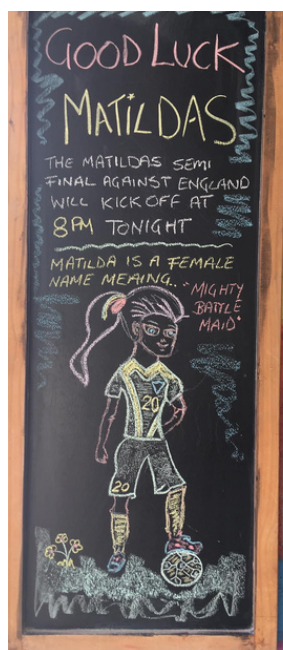 GOOD LUCK
MATILDAS
THE MATILDAS SEMI
FINAL AGAINST ENGLAND
WILL KICK OFF AT
8PM TONIGHT
MATILDA IS A FEMALE
NAME MEANING.. "MIGHTY
BATTLE
MAID"
20
20